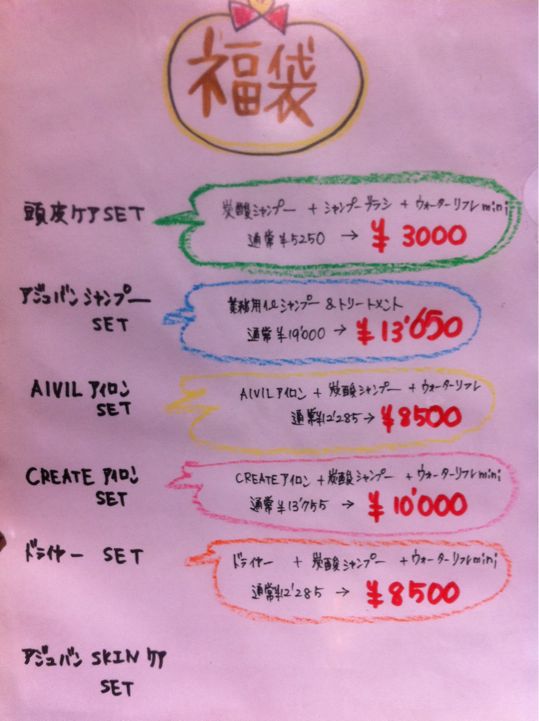 福袋
頭皮ケアSET
炭酸シャンプー + シャンプーブラシ + ウォーターリフレmini
通常¥5250 → ¥3000
アジュバンシャンプー
SET
業務用1ℓシャンプー &トリートメント
通常¥19'000 → ¥13'650
AIVILアイロン
SET
AIVILアイロン + 炭酸シャンプー + ウォーターリフレ
通常¥12'285→ ¥8500
CREATEアイロン
SET
CREATEアイロン + 炭酸シャンプー + ウォーターリフレmini
通常¥13'755 → ¥10'000
ドライヤー SET
ドライヤー + 炭酸シャンプー + ウォーターリフレmini
通常¥12'285 → ¥8500
アジュバン SKINケア
SET